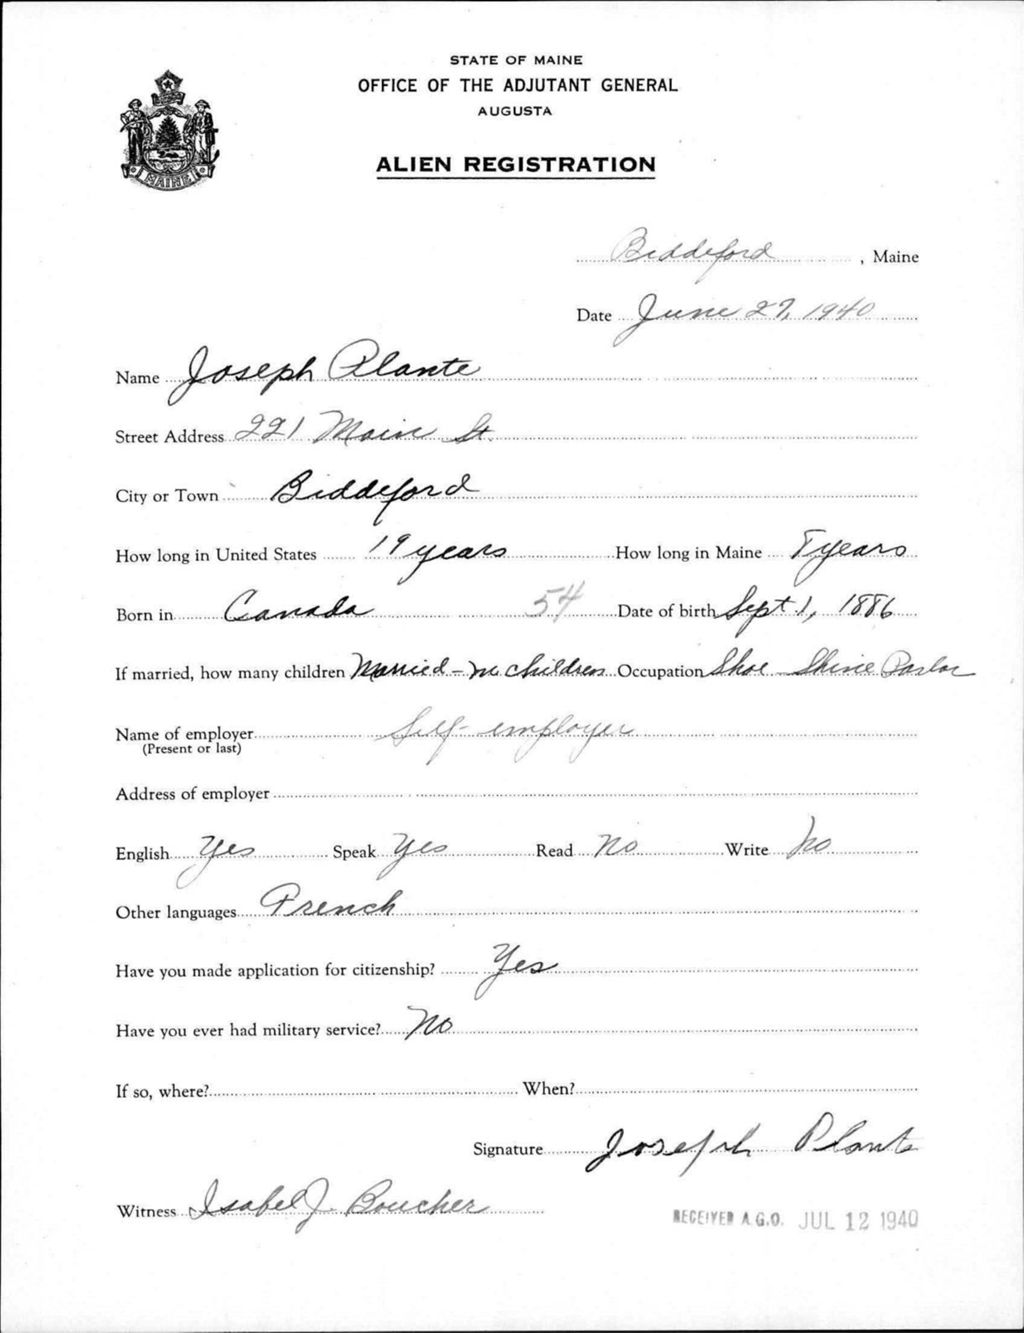 STATE OF MAINE
OFFICE OF THE ADJUTANT GENERAL
AUGUSTA
ALIEN REGISTRATION
MAINE
Biddeford, Maine
Date June 27, 1940
Name Joseph Plante
Street Address 221 Main St.
City or Town Biddeford
How long in United States 19 years How long in Maine years
Born in Canada 54 Date of birth Sept 1, 1886
If married, how many children Married - no children Occupation Shoe Shine Parlor
Name of employer Self-employer
(Present or last)
Address of employer
English Yes Speak Yes Read No Write No
Other languages French
Have you made application for citizenship? Yes
Have you ever had military service? No
If so, where? When?
Signature Joseph Plante
Witness Isabel J. Boucher
RECEIVED A.G.O. JUL 12 1940